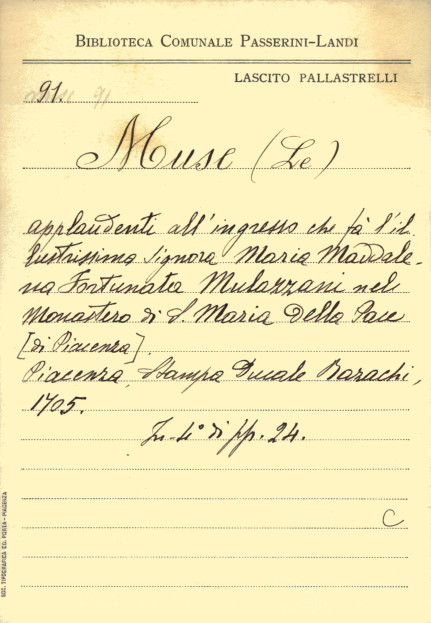 BIBLIOTECA COMUNALE PASSERINI-LANDI
LASCITO PALLASTRELLI
91.
Muse (Le)
applaudenti all'ingresso che fà l'il-
lustrissima Signora Maria Maddale-
na Fortunata Mulazzani nel
Monastero di S. Maria della Pace
[di Piacenza].
Piacenza, Stampa Ducale Bazachi,
1705.
In-4° di pp. 24.
C
SOC. TIPOGRAFICA ED. PORTA - PIACENZA